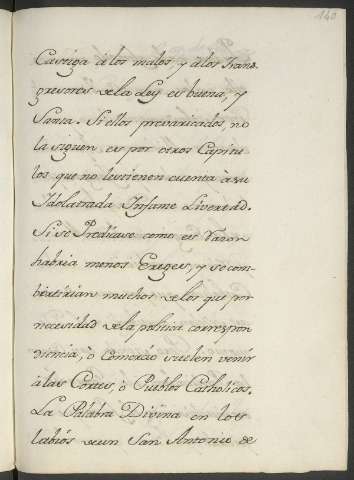 140
Castiga à los malos, y álos trans-
gresores dela Ley es buena, y
Santa. Si ellos prevaricados, no
la siguen es por otros Capitu-
los que no les tienen cuenta à su
Idolatrada Infame Livertad.
Si se Predicase como es razon
habria menos Ereges, y se com-
birtirian muchos delos que por
necesidad dela politica correspon
diencia, ò Comercio suelen venir
à las Cortes, ò Pueblos Catholicos.
La Palabra Divina en los
labiós deun San Antonio de